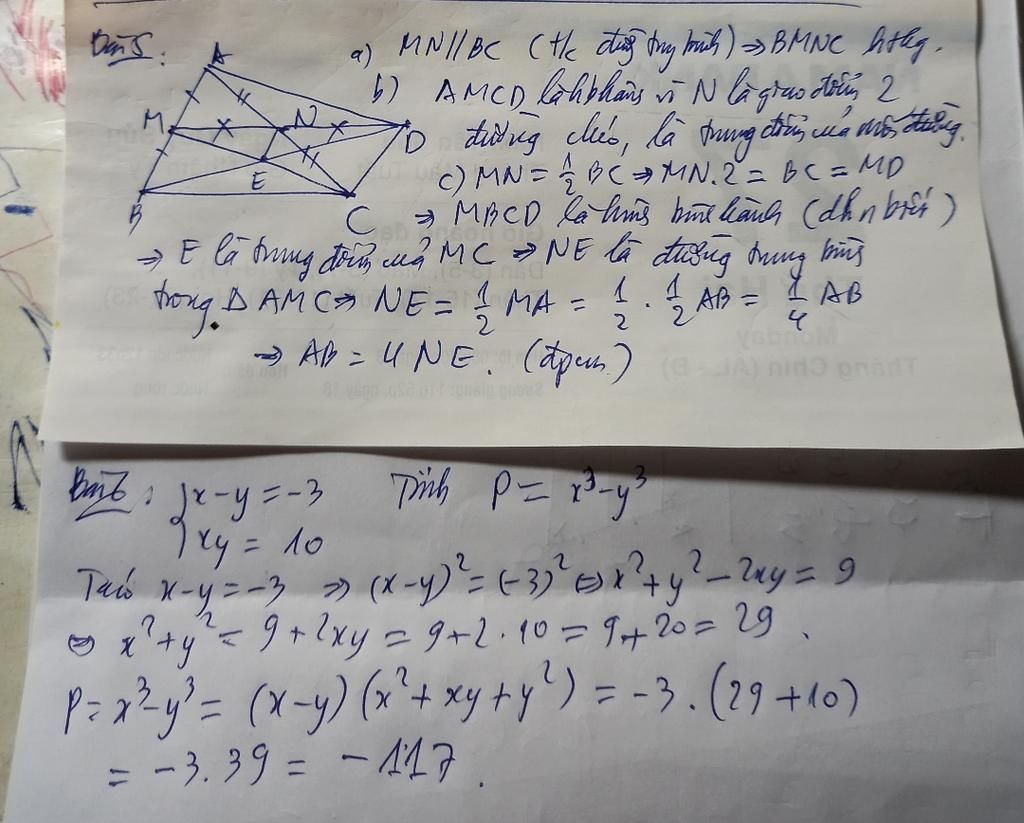 Bài 5:
a) MN//BC (t/c đường trung bình) ⇒ BMNC hthg.
b) AMCD là hbhành vì N là giao điểm 2
đường chéo, là trung điểm của mỗi đường.
c) MN = 1/2 BC ⇒ MN.2 = BC = MD
⇒ MBCD là hình bình hành (dh n biết)
⇒ E là trung điểm của MC ⇒ NE là đường trung bình
trong Δ AMC ⇒ NE = 1/2 MA = 1/2 · 1/2 AB = 1/4 AB
⇒ AB = 4 NE. (đpcm)
A
M
N
D
E
B
C
Bài 6: { x - y = -3 Tính P = x³ - y³
xy = 10
Ta có x - y = -3 ⇒ (x-y)² = (-3)² ⇔ x² + y² - 2xy = 9
⇔ x² + y² = 9 + 2xy = 9 + 2 · 10 = 9 + 20 = 29.
P = x³ - y³ = (x-y)(x² + xy + y²) = -3 . (29 + 10)
= -3.39 = -117.
Monday